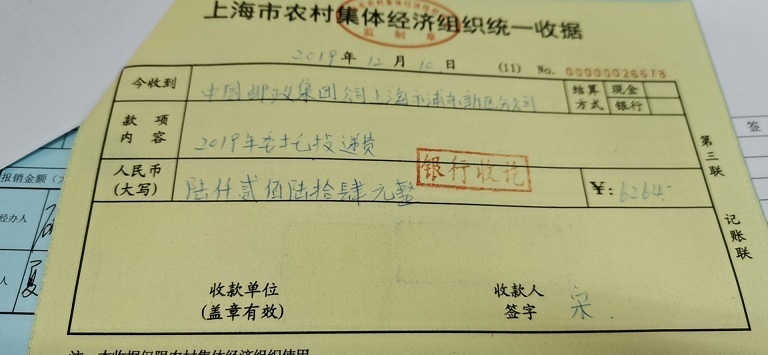 上海市农村集体经济组织统一收据
监制章
2019年12月10日 (11) No. 00000026678
今收到 中国邮政集团公司上海市浦东新区分公司 结算方式 现金 银行
款项内容 2019年委托投递费
人民币(大写) 陆仟贰佰陆拾肆元整 ¥: 6264.
银行收讫
第三联 记账联
收款单位 收款人
(盖章有效) 签字 宋
注:本收据仅限农村集体经济组织使用
报销金额(
经办人
人 夏
签